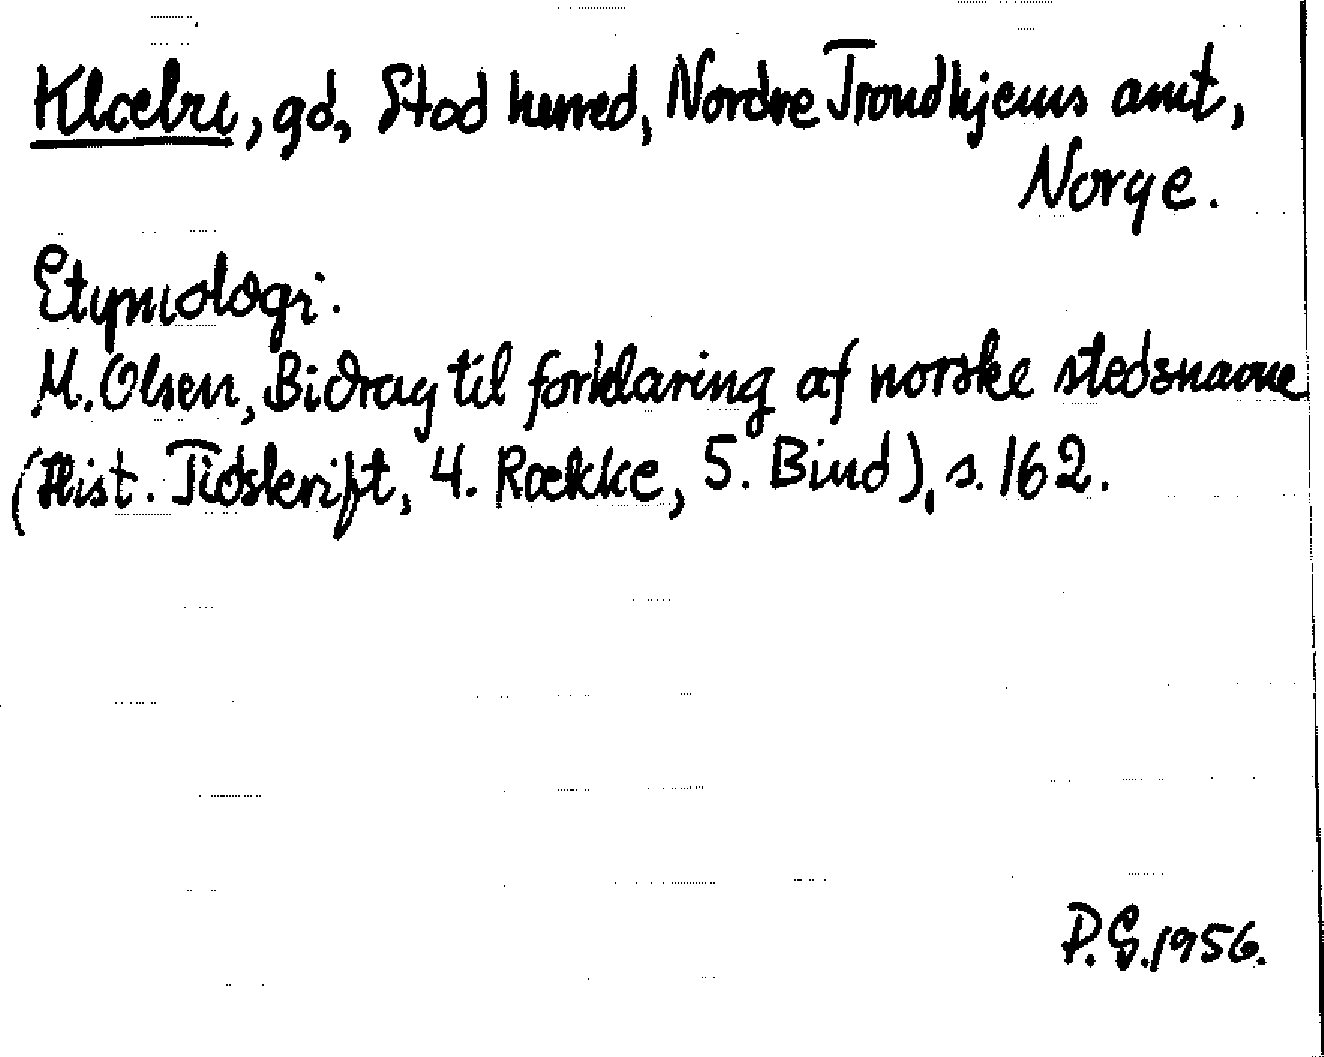 Klæbu, gd, Stod herred, Nordre Trondhjems amt,
Norge.
Etymologi.
M. Olsen, Bidrag til forklaring af norske stedsnavne
(Hist. Tidskrift, 4. Række, 5. Bind), s. 162.
P.G. 1956.